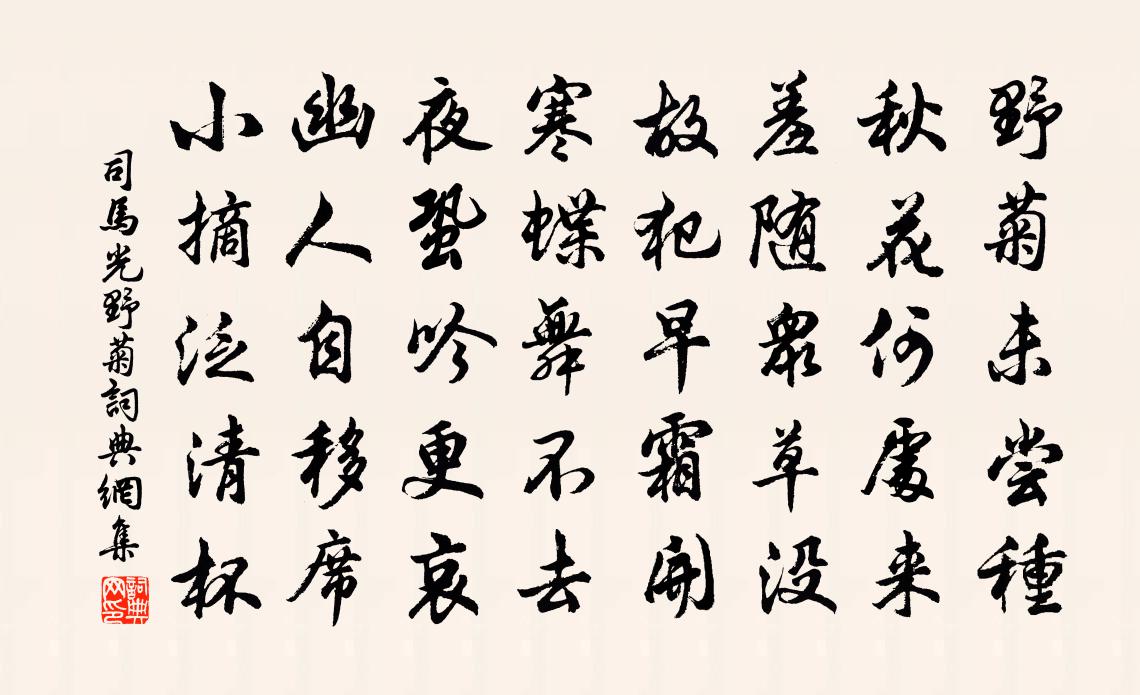 野菊未尝種
秋花何處来
羞随衆草没
故犯早霜開
寒蝶舞不去
夜蛩吟更哀
幽人自移席
小摘泛清杯
司馬光野菊詞典網集
詞典
网印